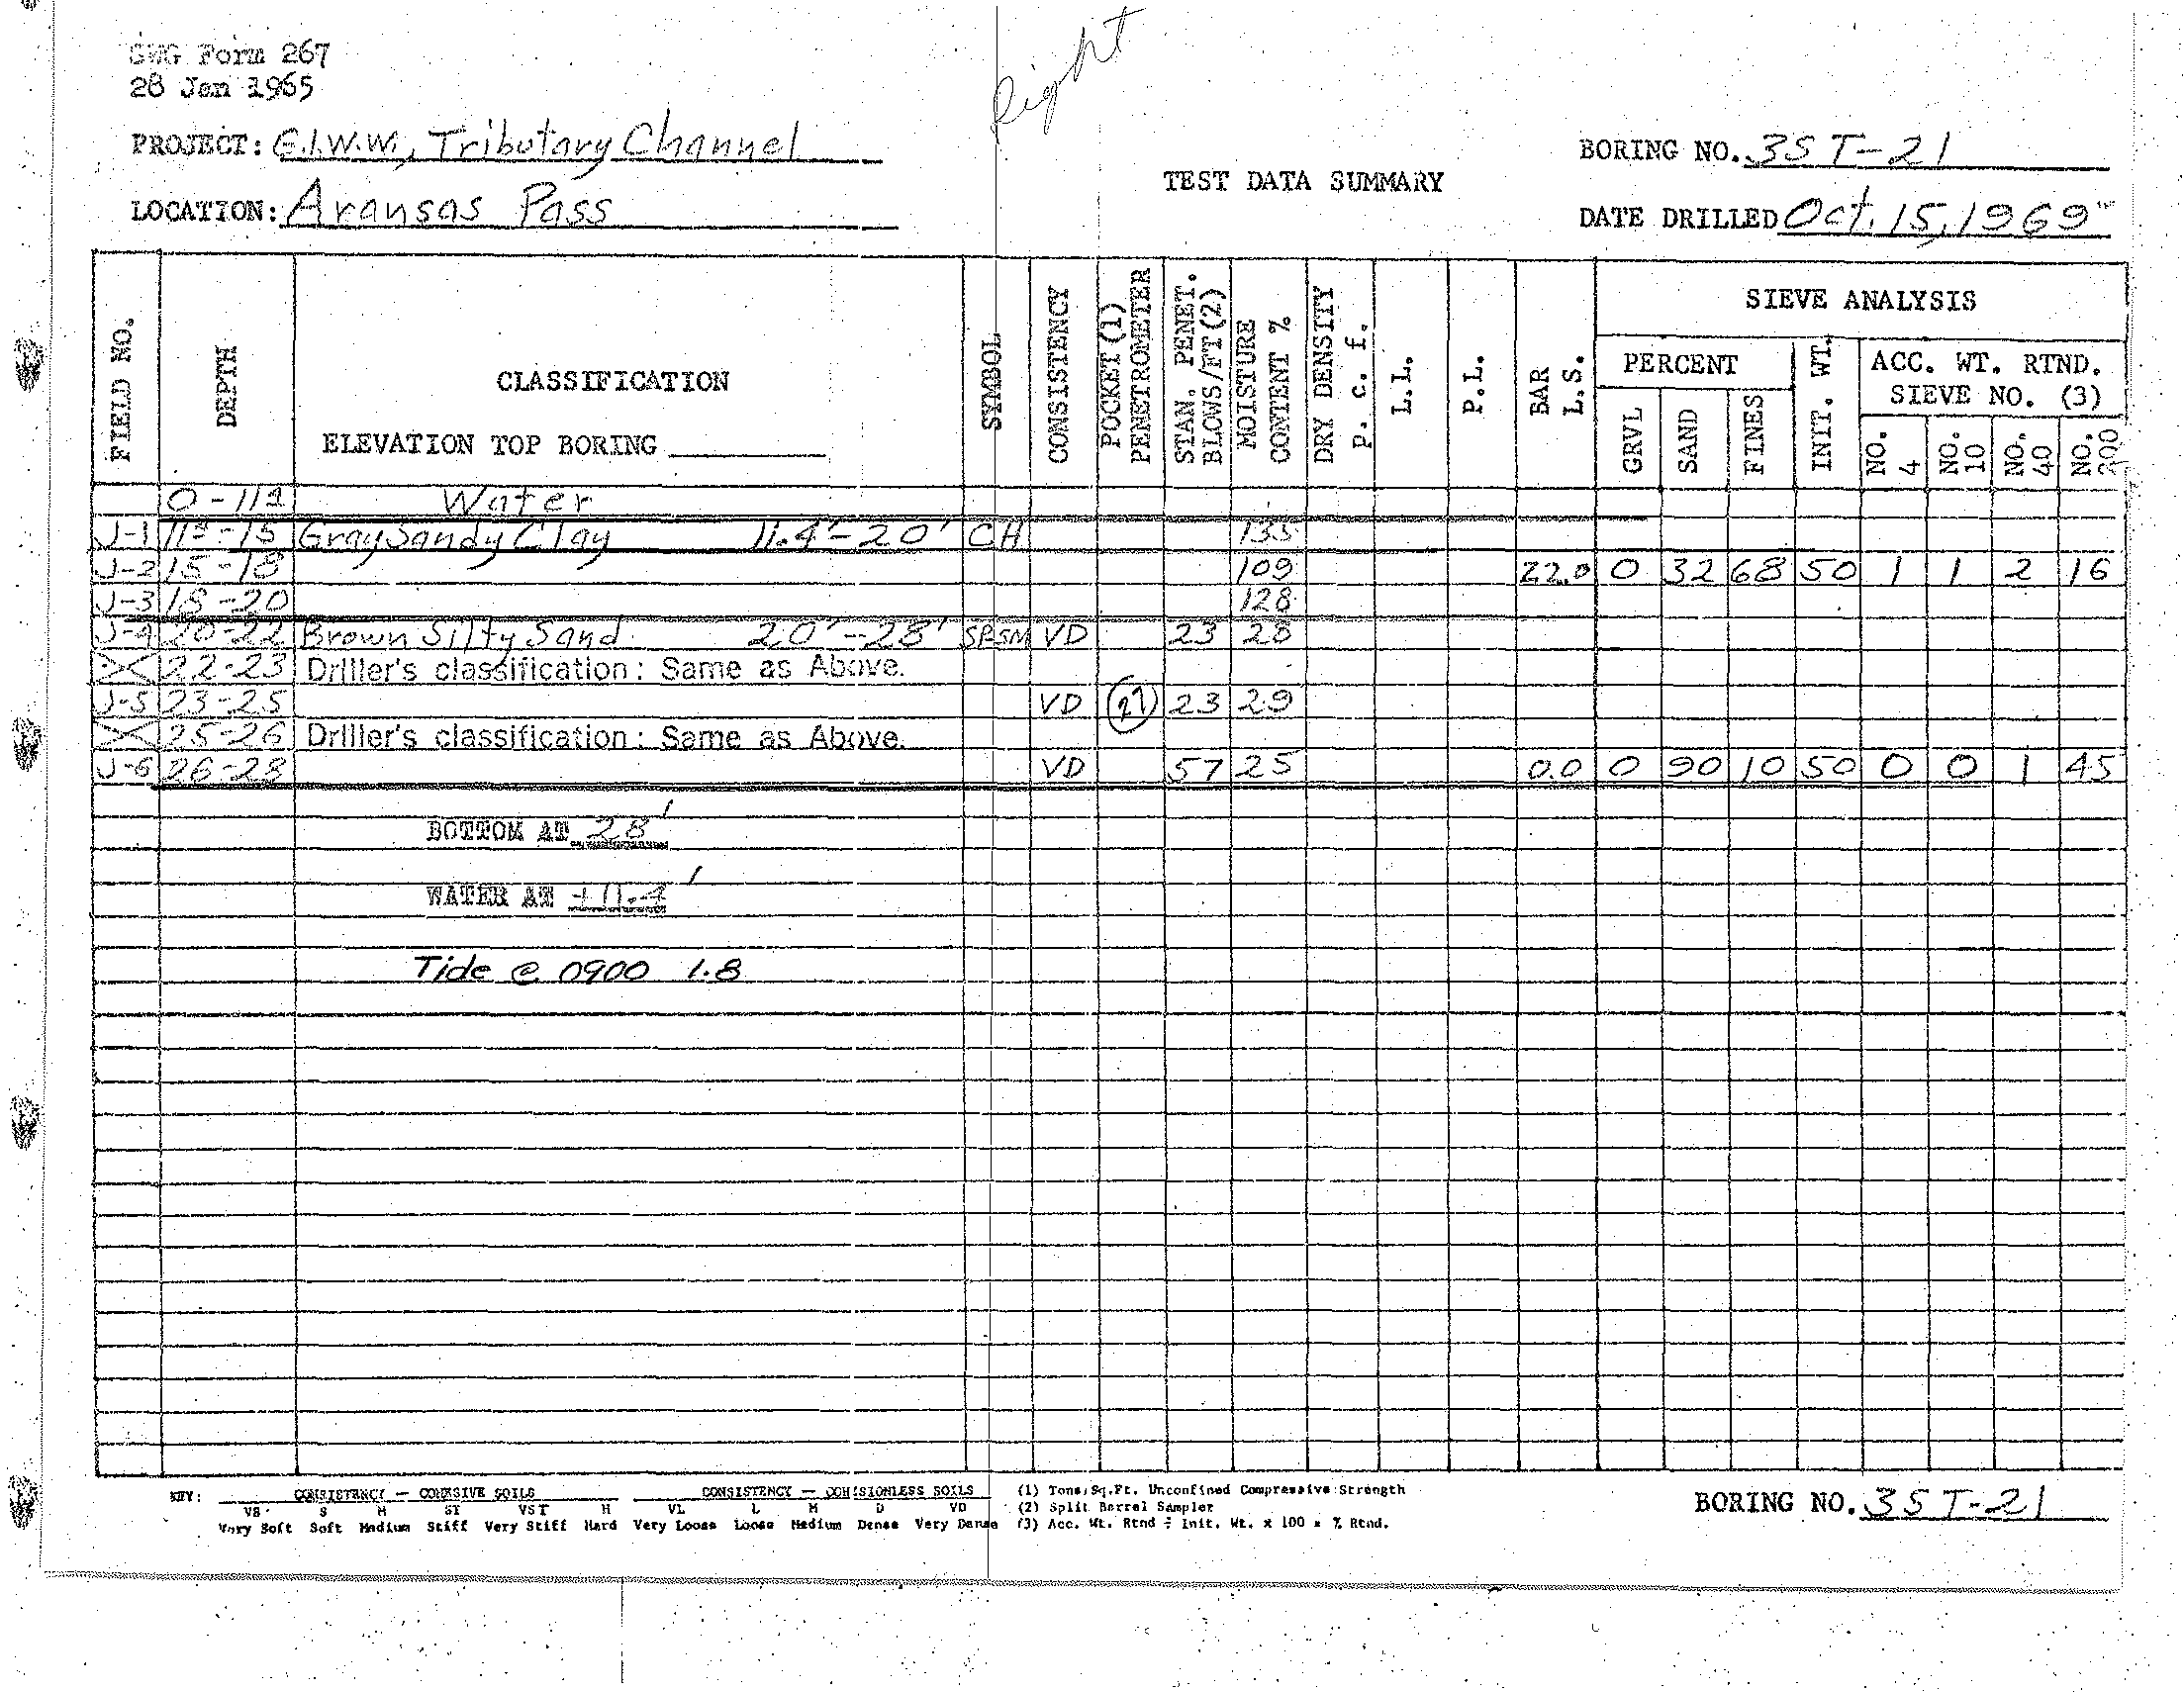 SWG Form 267
28 Jan 1965
Right
PROJECT: G.I.W.W., Tributary Channel
LOCATION: Aransas Pass
TEST DATA SUMMARY
BORING NO. 3ST-21
DATE DRILLED Oct. 15, 1969
FIELD NO. DEPTH CLASSIFICATION SYMBOL CONSISTENCY POCKET (1) PENETROMETER STAN. PENET. BLOWS/FT (2) MOISTURE CONTENT % DRY DENSITY P. c. f. L.L. P.L. BAR L.S. SIEVE ANALYSIS
ELEVATION TOP BORING
PERCENT INIT. WT. ACC. WT. RTND. SIEVE NO. (3)
GRVL SAND FINES NO. 4 NO. 10 NO. 40 NO. 200
0-11 4 Water
J-1 11 4-15 Gray Sandy Clay 11.4'-20' CH 135
J-2 15-18 109 22.0 0 32 68 50 1 1 2 16
J-3 18-20 128
J-4 20-22 Brown Silty Sand 20'-28' SP-SM VD 23 28
22-23 Driller's classification: Same as Above.
J-5 23-25 VD 23 29
25-26 Driller's classification: Same as Above.
J-6 26-28 VD 57 25 0.0 0 90 10 50 0 0 1 45
BOTTOM AT 28'
WATER AT +11.4'
Tide @ 0900 1.8
KEY: CONSISTENCY — COHESIVE SOILS CONSISTENCY — COHESIONLESS SOILS
VS S M ST VST H VL L M D VD
Very Soft Soft Medium Stiff Very Stiff Hard Very Loose Loose Medium Dense Very Dense
(1) Tons/Sq.Ft. Unconfined Compressive Strength
(2) Split Barrel Sampler
(3) Acc. Wt. Rtnd ÷ Init. Wt. x 100 = % Rtnd.
BORING NO. 3ST-21